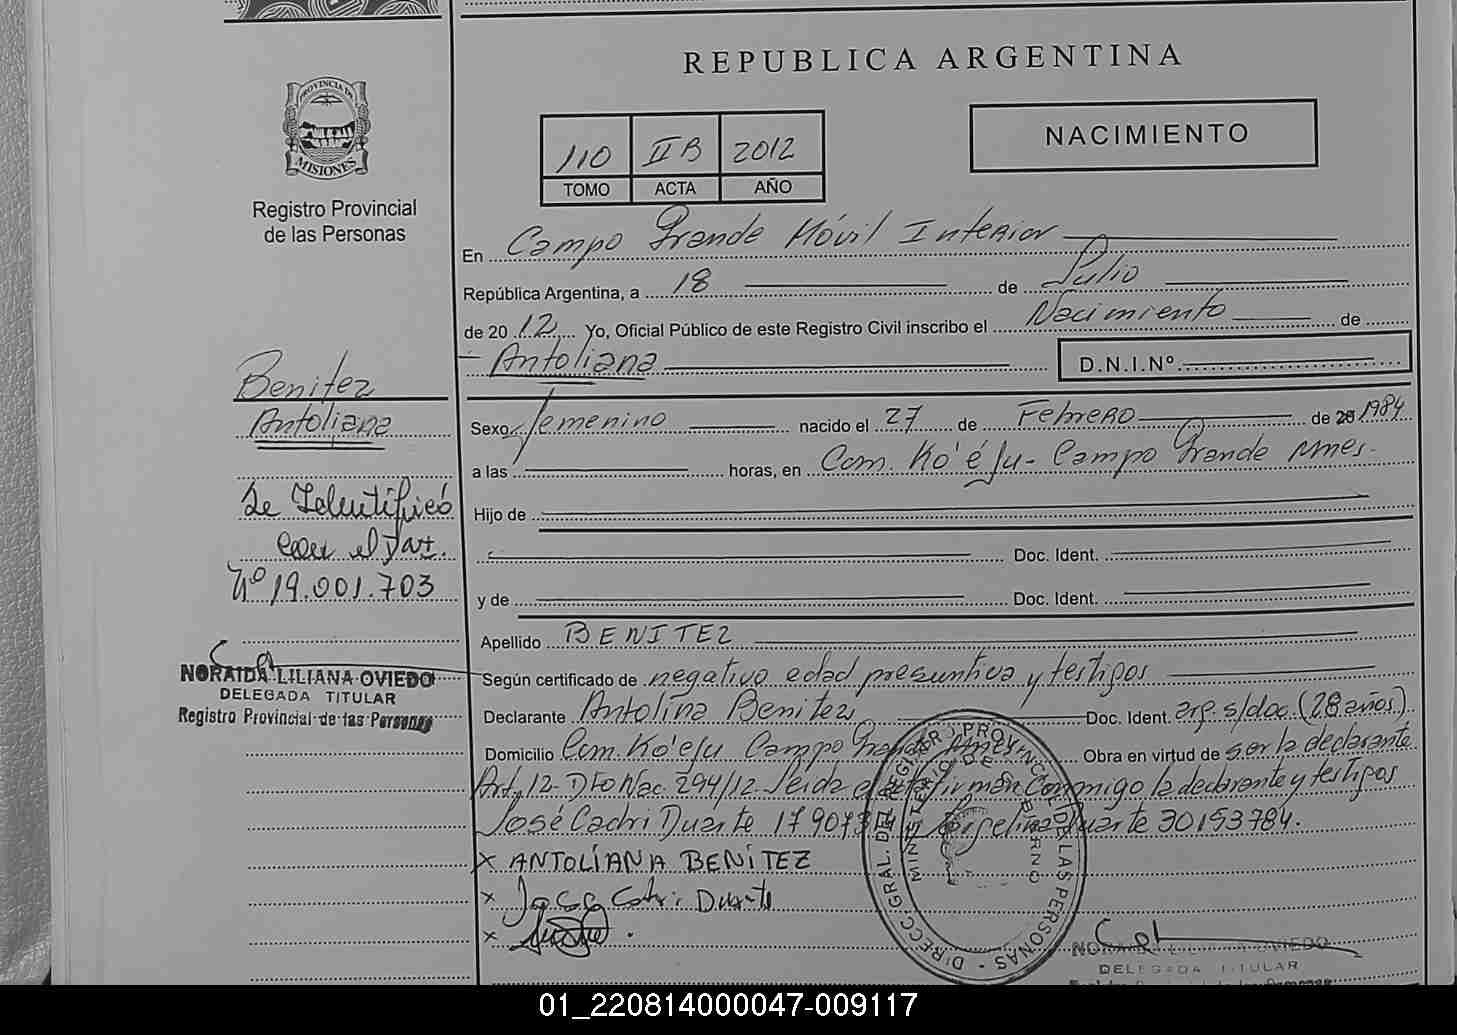 REPUBLICA ARGENTINA
PROVINCIA DE
MISIONES
Registro Provincial
de las Personas
110 II B 2012
TOMO ACTA AÑO
NACIMIENTO
En Campo Grande Móvil Interior
República Argentina, a 18 de Julio
de 2012 Yo, Oficial Público de este Registro Civil inscribo el Nacimiento de
Antoliana
D.N.I.Nº
Benitez
Antoliana
Se Identificó
con el
Nº 19.001.703
NORAIDA LILIANA OVIEDO
DELEGADA TITULAR
Registro Provincial de las Personas
Sexo femenino nacido el 27 de Febrero de 20 1984
a las horas, en Com. Ko'é Ju - Campo Grande Mnes.
Hijo de
Doc. Ident.
y de Doc. Ident.
Apellido BENITEZ
Según certificado de negativo edad presuntiva y testigos
Declarante Antolina Benitez Doc. Ident. arg. s/doc (28 años)
Domicilio Com. Ko'eju Campo Grande Mnes Obra en virtud de ser la declarante
Art. 12 - Dto Nac. 294/12 - Leida el acta firman conmigo la declarante y testigos
José Cadri Duarte 179073 Duarte 30153784.
x ANTOLÍANA BENÍTEZ
x Jose Catri Duarte
x
DIRECC. GRAL. DEL REGISTRO PROVINCIAL DE LAS PERSONAS
MINISTERIO DE GOBIERNO
NORAIDA LILIANA OVIEDO
DELEGADA TITULAR
01_220814000047-009117